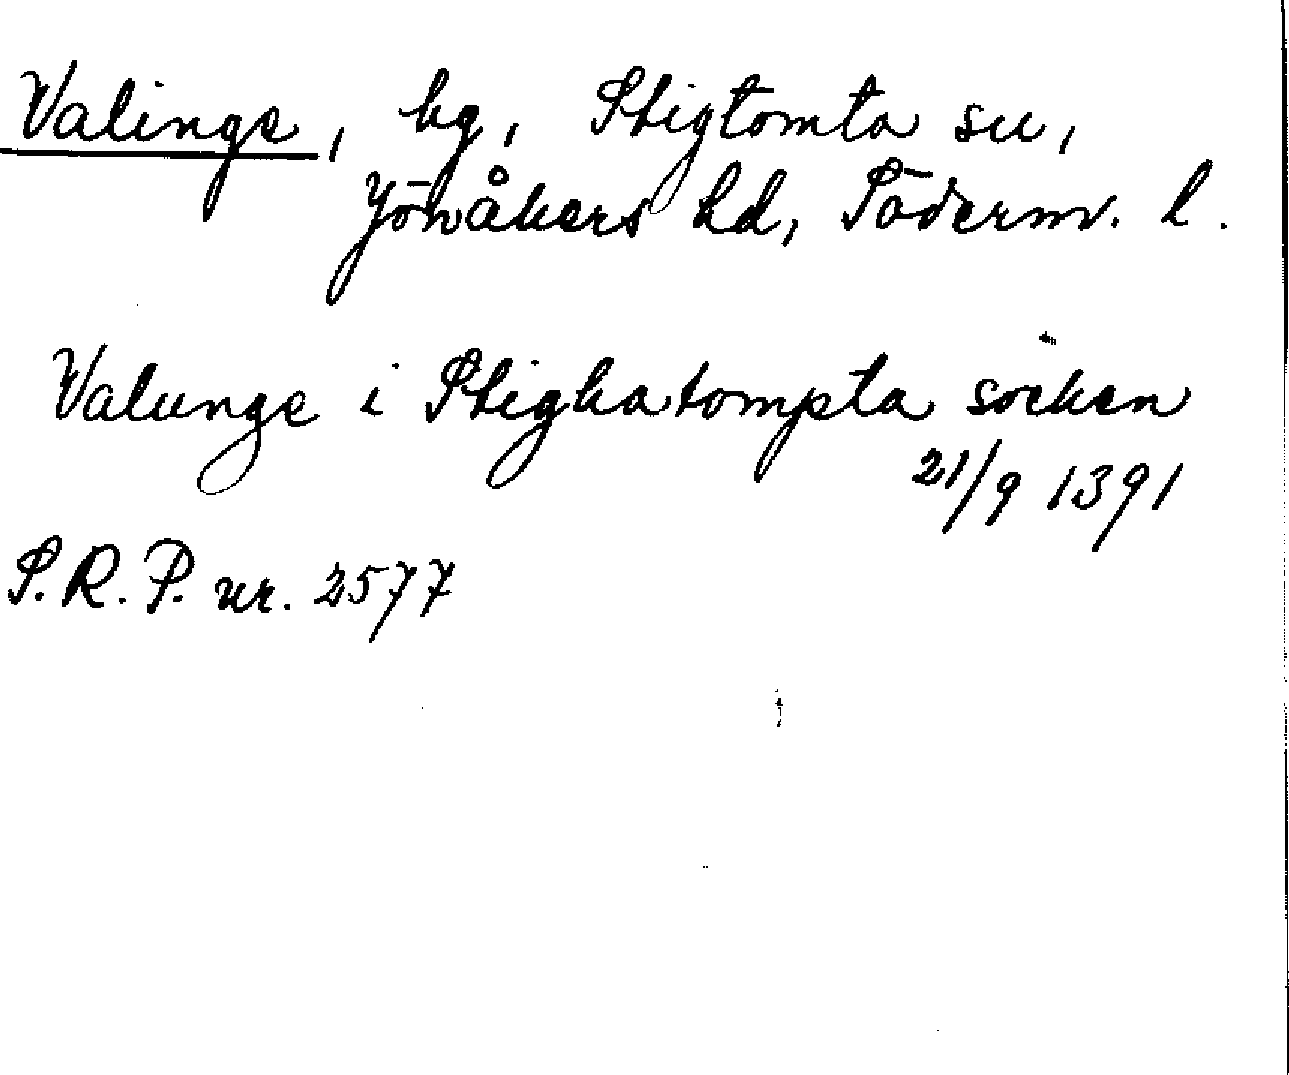 Valinge, by, Stigtomta sn,
Jönåkers hd, Söderm. l.
Valunge i Stighatompta socken
21/9 1391
S.R.P. nr. 2577